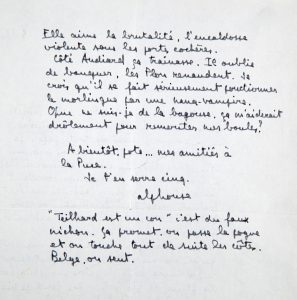 Elle aime la brutalité, l'encaldosse
violente sous les portes cochères.
Côté Audiard, ça traînasse. Il oublie
de banquer, les Plon renaudent. Je
crois qu'il se fait sérieusement fonctionner
le morlingue par une nana-vampire.
Que ne suis-je de la bagouse, ça m'aiderait
drôlement pour remonter mes boules!
A bientôt, pote... mes amitiés à
la Puce.
Je t'en serre cinq.
alphonse
"Teilhard est un con" c'est du faux
nichon. Ça promet, on passe la pogne
et on touche tout de suite les côtes.
Belge, on sent.